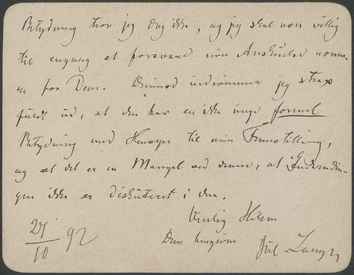 Betydning tror jeg dog ikke, og jeg skal være villig
til engang at forsvare mine Anskuelser
for Dem. Derimod indrømmer jeg strax
fuldt ud, at den har en ikke ringe formel
Betydning med Hensyn til min Fremstilling,
og at det er en Mangel ved denne, at Indvendin-
gen ikke er diskuteret i den.
Venlig Hilsen
Deres hengivne
Jul. Lange
29/10 92